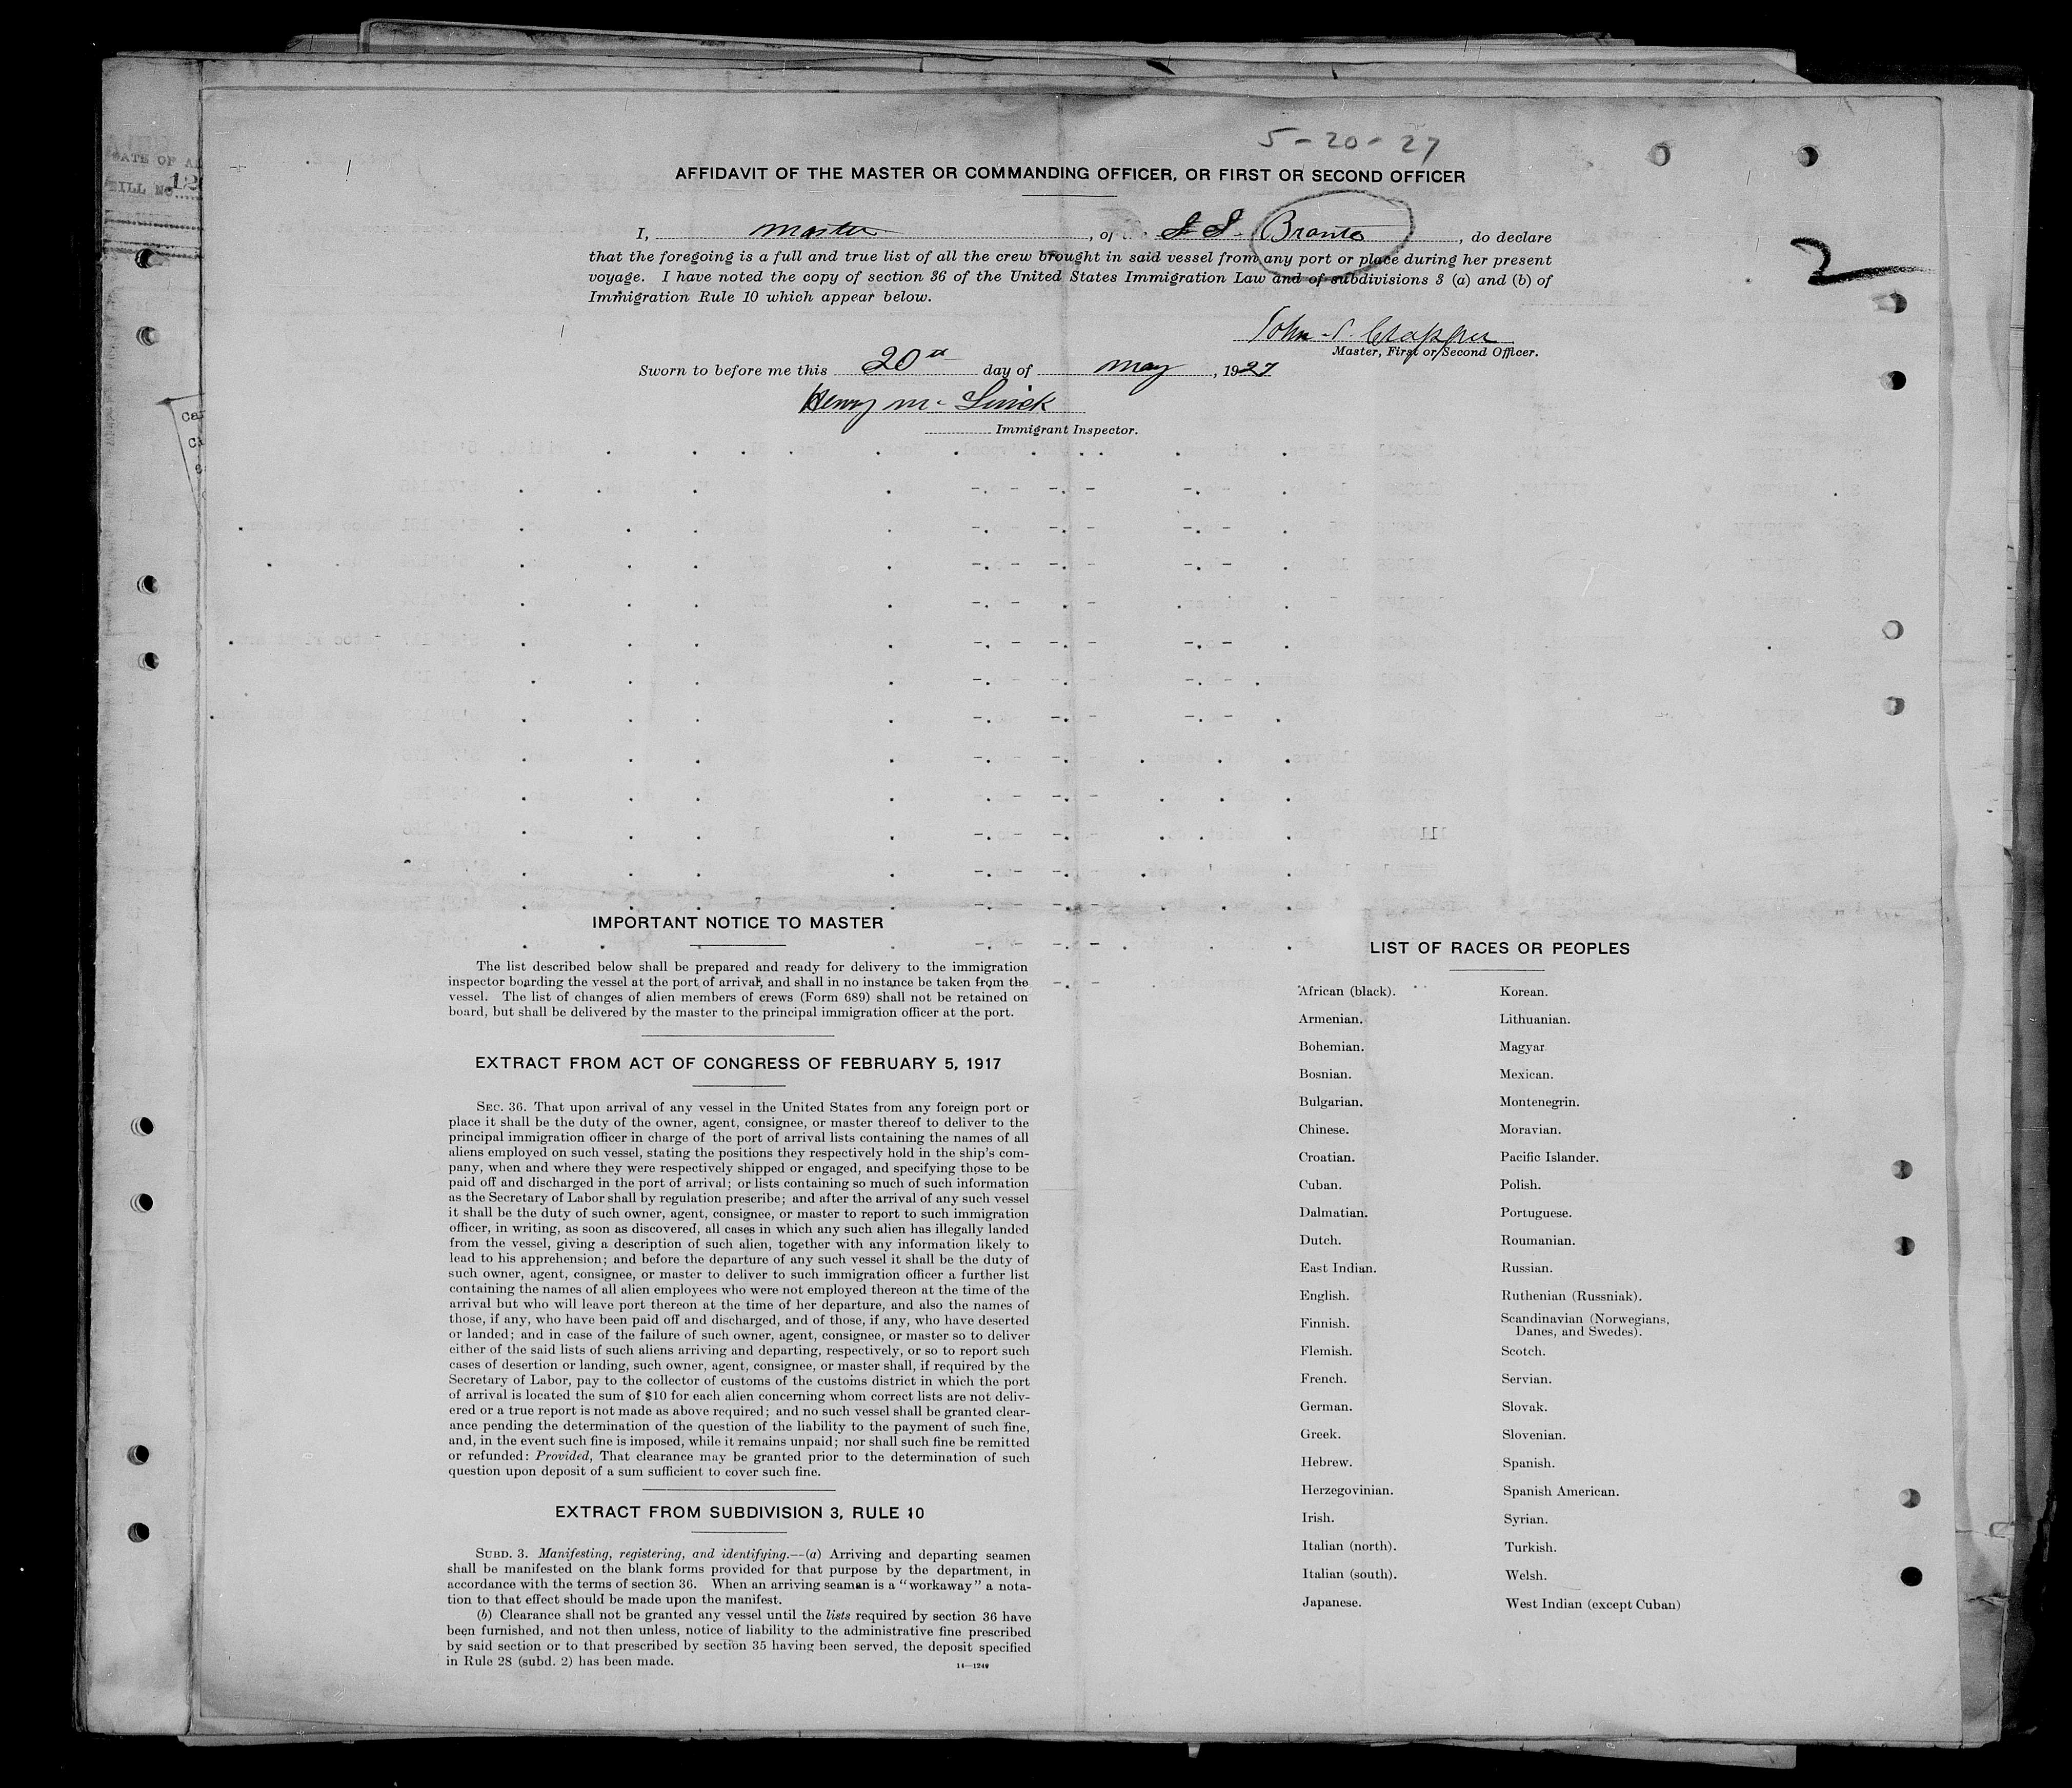 5-20-27
AFFIDAVIT OF THE MASTER OR COMMANDING OFFICER, OR FIRST OR SECOND OFFICER
I, master, of S S Branto, do declare
that the foregoing is a full and true list of all the crew brought in said vessel from any port or place during her present
voyage. I have noted the copy of section 36 of the United States Immigration Law and of subdivisions 3 (a) and (b) of
Immigration Rule 10 which appear below.
2
John
Master, First or Second Officer.
Sworn to before me this 20th day of may, 1927
Henry
Immigrant Inspector.
IMPORTANT NOTICE TO MASTER
The list described below shall be prepared and ready for delivery to the immigration
inspector boarding the vessel at the port of arrival, and shall in no instance be taken from the
vessel. The list of changes of alien members of crews (Form 689) shall not be retained on
board, but shall be delivered by the master to the principal immigration officer at the port.
EXTRACT FROM ACT OF CONGRESS OF FEBRUARY 5, 1917
SEC. 36. That upon arrival of any vessel in the United States from any foreign port or
place it shall be the duty of the owner, agent, consignee, or master thereof to deliver to the
principal immigration officer in charge of the port of arrival lists containing the names of all
aliens employed on such vessel, stating the positions they respectively hold in the ship's com-
pany, when and where they were respectively shipped or engaged, and specifying those to be
paid off and discharged in the port of arrival; or lists containing so much of such information
as the Secretary of Labor shall by regulation prescribe; and after the arrival of any such vessel
it shall be the duty of such owner, agent, consignee, or master to report to such immigration
officer, in writing, as soon as discovered, all cases in which any such alien has illegally landed
from the vessel, giving a description of such alien, together with any information likely to
lead to his apprehension; and before the departure of any such vessel it shall be the duty of
such owner, agent, consignee, or master to deliver to such immigration officer a further list
containing the names of all alien employees who were not employed thereon at the time of the
arrival but who will leave port thereon at the time of her departure, and also the names of
those, if any, who have been paid off and discharged, and of those, if any, who have deserted
or landed; and in case of the failure of such owner, agent, consignee, or master so to deliver
either of the said lists of such aliens arriving and departing, respectively, or so to report such
cases of desertion or landing, such owner, agent, consignee, or master shall, if required by the
Secretary of Labor, pay to the collector of customs of the customs district in which the port
of arrival is located the sum of $10 for each alien concerning whom correct lists are not deliv-
ered or a true report is not made as above required; and no such vessel shall be granted clear-
ance pending the determination of the question of the liability to the payment of such fine,
and, in the event such fine is imposed, while it remains unpaid; nor shall such fine be remitted
or refunded: Provided, That clearance may be granted prior to the determination of such
question upon deposit of a sum sufficient to cover such fine.
EXTRACT FROM SUBDIVISION 3, RULE 10
SUBD. 3. Manifesting, registering, and identifying.—(a) Arriving and departing seamen
shall be manifested on the blank forms provided for that purpose by the department, in
accordance with the terms of section 36. When an arriving seaman is a "workaway" a nota-
tion to that effect should be made upon the manifest.
(b) Clearance shall not be granted any vessel until the lists required by section 36 have
been furnished, and not then unless, notice of liability to the administrative fine prescribed
by said section or to that prescribed by section 35 having been served, the deposit specified
in Rule 28 (subd. 2) has been made.
14—1240
LIST OF RACES OR PEOPLES
African (black).
Armenian.
Bohemian.
Bosnian.
Bulgarian.
Chinese.
Croatian.
Cuban.
Dalmatian.
Dutch.
East Indian.
English.
Finnish.
Flemish.
French.
German.
Greek.
Hebrew.
Herzegovinian.
Irish.
Italian (north).
Italian (south).
Japanese.
Korean.
Lithuanian.
Magyar
Mexican.
Montenegrin.
Moravian.
Pacific Islander.
Polish.
Portuguese.
Roumanian.
Russian.
Ruthenian (Russniak).
Scandinavian (Norwegians,
Danes, and Swedes).
Scotch.
Servian.
Slovak.
Slovenian.
Spanish.
Spanish American.
Syrian.
Turkish.
Welsh.
West Indian (except Cuban)